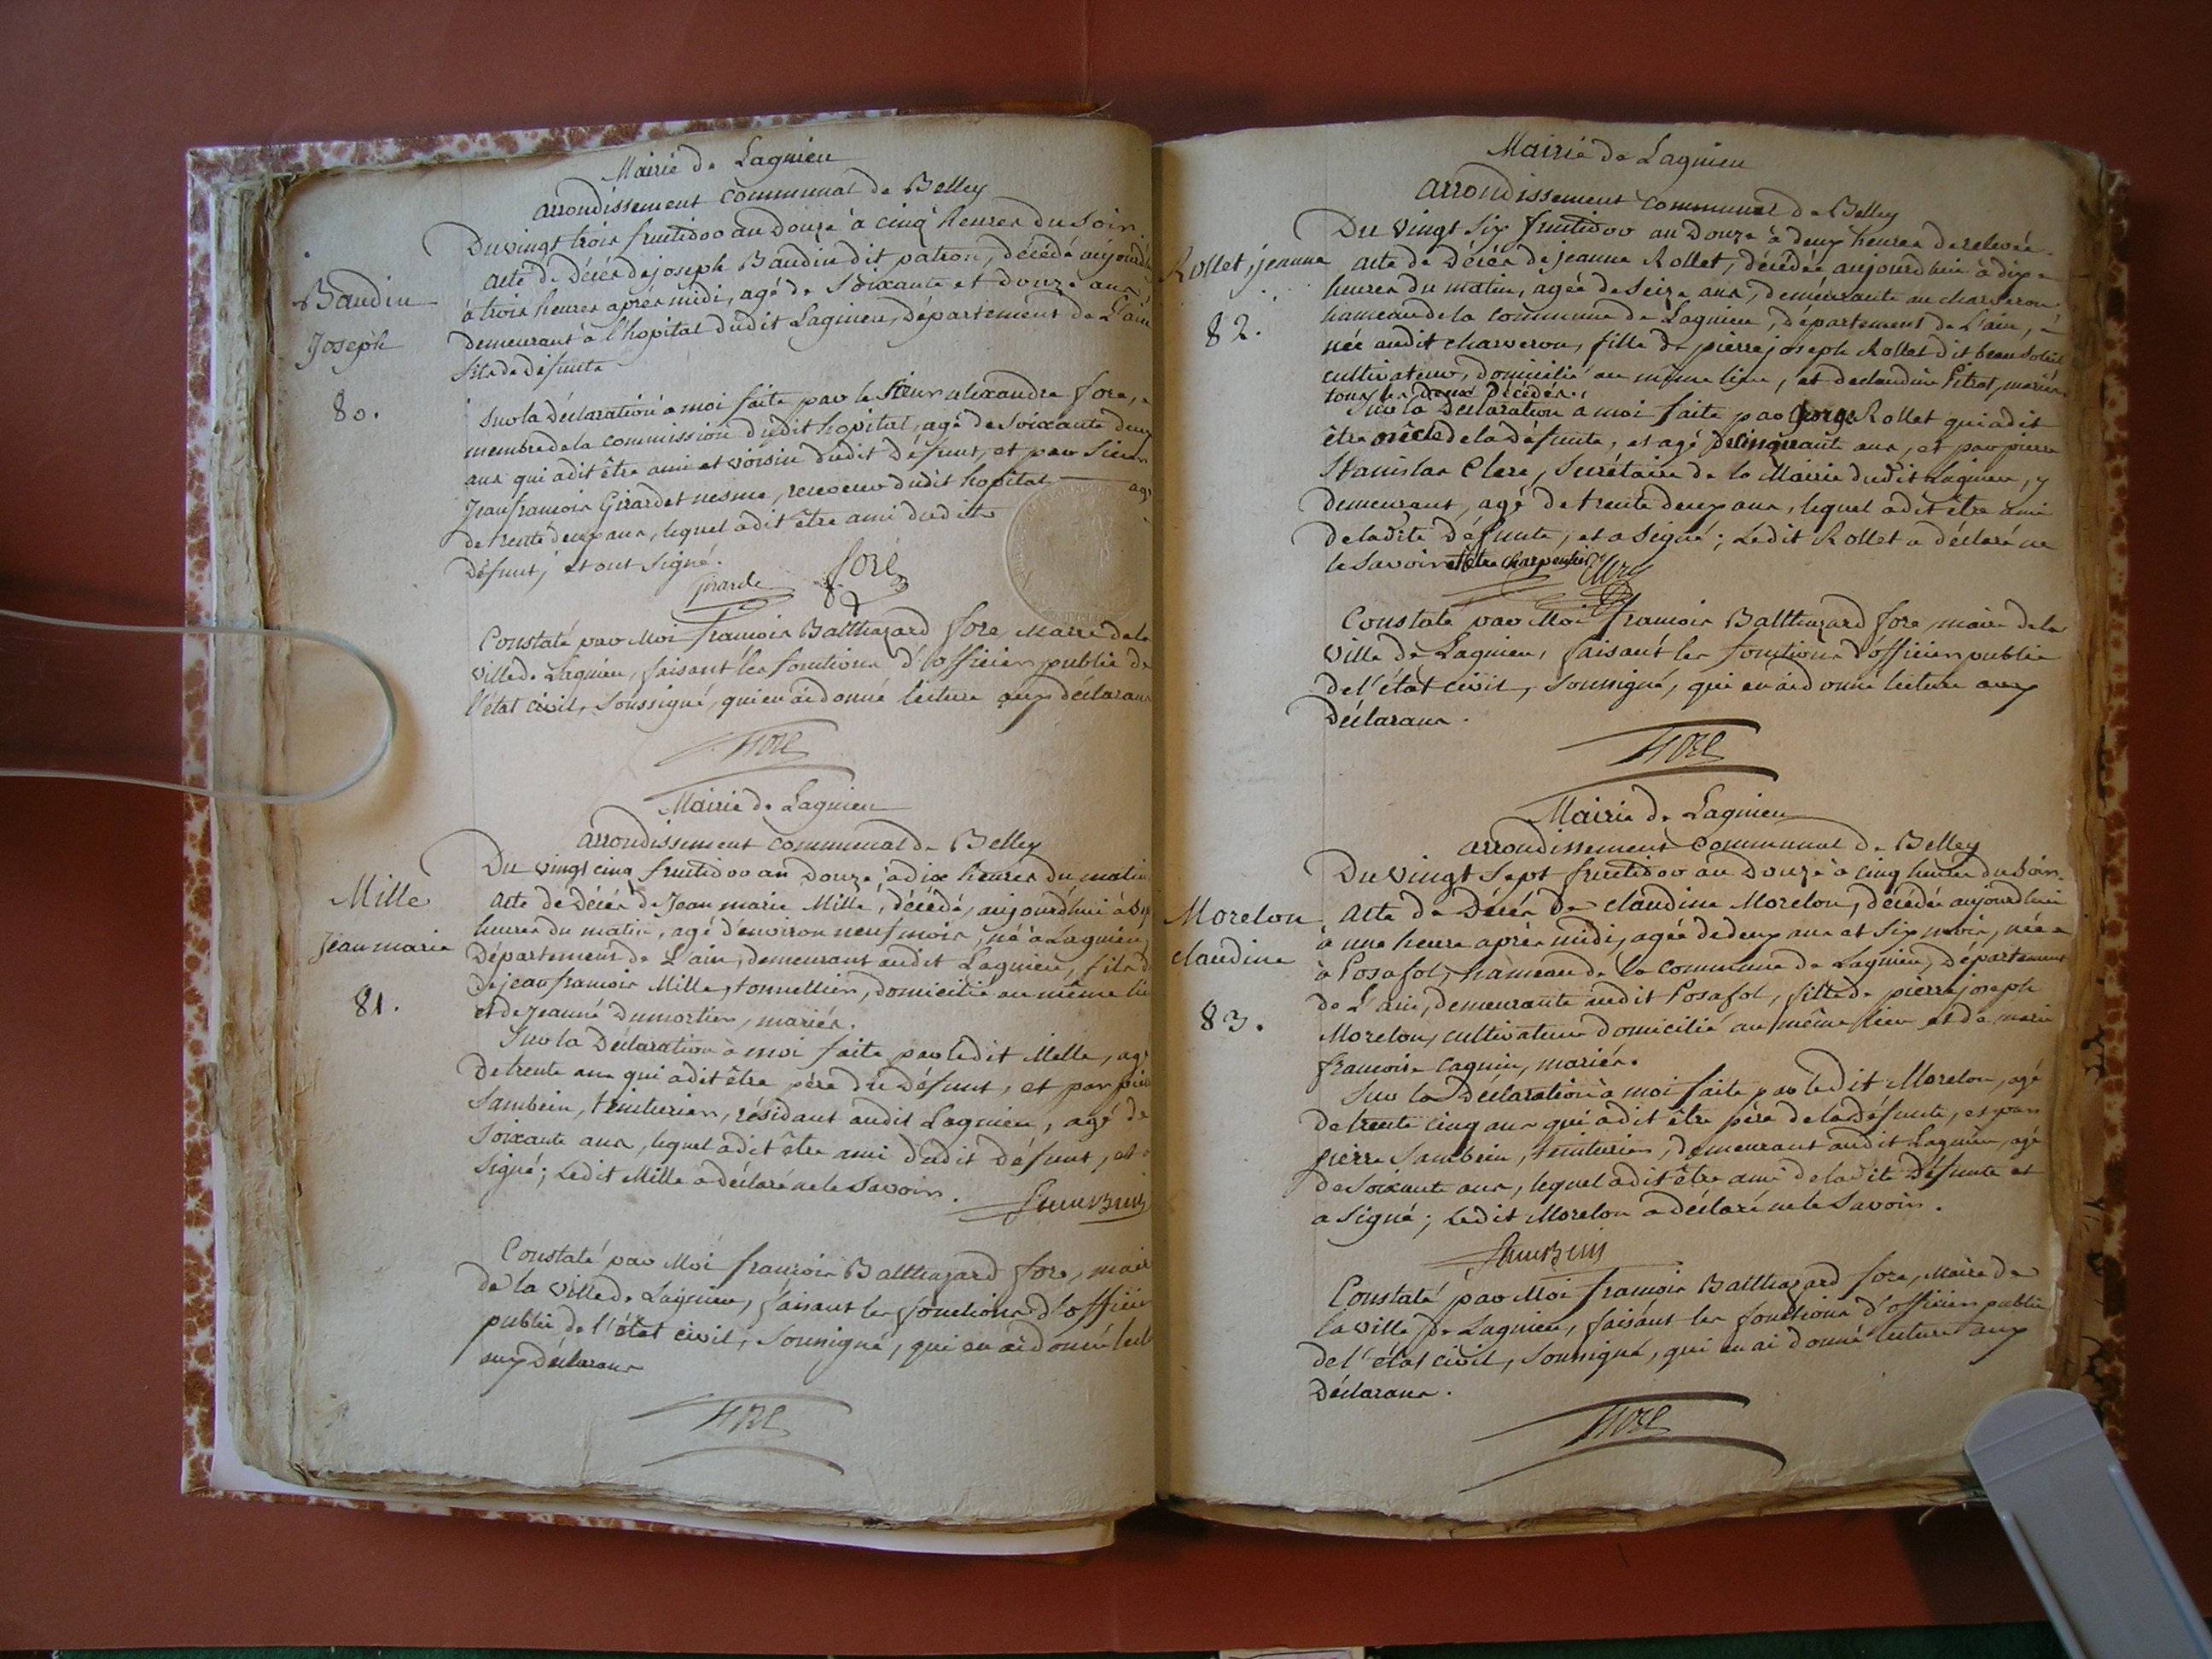 Mairie de Lagnieu
arrondissement communal de Belley
Du vingt trois fructidor an douze à cinq heures du soir
Baudin
Joseph
80.
acte de décès de joseph Baudin dit patron, décédé aujourd'h
à trois heures après midi, agé de soixante et douze ans
demeurant à l'hopital dudit Lagnieu, département de L'ain
fils de défunts
sur la déclaration à moi faite par le sieur alexandre fore,
membre de la commission dudit hopital, agé de soixante deux
ans qui a dit être ami et voisin dudit défunt, et par sieur
Jean françois Girardet nesme, receveur dudit hopital agé
de trente deux ans, lequel a dit être ami dudit
défunt, et ont signé.
Girarde foré
Constaté par Moi françois Balthazard fore, Maire de la
ville de Lagnieu, faisant les fonctions d'officier public de
l'état civil, soussigné, qui en ai donné lecture aux déclarans
FORE
Mairie de Lagnieu
arrondissement communal de Belley
Du vingt cinq fructidor an douze à dix heures du matin
Mille
Jean marie
81.
acte de décès de Jean marie Mille, décédé, aujourd'hui à six
heures du matin, agé d'environ neuf mois, né à Lagnieu,
Département de L'ain, demeurant audit Lagnieu, fils d
de jean françois Mille, tonnellier, domicilié au même lie
et de Jeanne Dumortier, mariés.
sur la Déclaration à moi faite par ledit Mille, agé
de trente ans qui a dit être père du défunt, et par pier
Sambein, teinturier, résidant audit Lagnieu, agé de
soixante ans, lequel a dit être ami dudit défunt, et a
signé; Ledit Mille a déclaré ne le savoir.
Constaté par Moi françois Balthazard fore, mair
de la ville de Lagnieu, faisant les fonctions d'officier
public de l'état civil, soussigné, qui en ai donné lect
aux déclarans
FORE
Mairie de Lagnieu
arrondissement communal de Belley
Du vingt six fructidor an douze à deux heures de relevée
Rollet, jeanne
82.
acte de décès de jeanne Rollet, décédée aujourd'hui à dix
heures du matin, agée de seize ans, demeurante au charveron
hameau de la commune de Lagnieu, département de L'ain,
née audit charveron, fille de pierre joseph Rollet dit beau soleil
cultivateur, domicilié au même lieu, et de claudine Pitrat, mariés
tous les deux Décédés.
sur la Déclaration à moi faite par George Rollet qui a dit
être oncle de la défunte, et agé de cinquante ans, et par pierre
Stanislas Clerc, secrétaire de la Mairie dudit Lagnieu, y
demeurant, agé de trente deux ans, lequel a dit être ami
de ladite défunte, et a signé; Ledit Rollet a déclaré ne
le savoir et être charpentier Clerc
Constaté par Moi françois Balthazard fore, maire de la
ville de Lagnieu, faisant les fonctions d'officier public
de l'état civil, soussigné, qui en ai donné lecture aux
Déclarans.
FORE
Mairie de Lagnieu
arrondissement communal de Belley
Du vingt sept fructidor an douze à cinq heures du soir.
Morelon
claudine
83.
acte de Décès de claudine Morelon, décédée aujourd'hui
à une heure après midi, agée de deux ans et six mois, née
à Posafol, hameau de la commune de Lagnieu, Département
de L'ain, demeurante audit Posafol, fille de pierre joseph
Morelon, cultivateur domicilié au même lieu et de marie
françoise cagnin, mariés.
sur la Déclaration à moi faite par ledit Morelon, agé
de trente cinq ans qui a dit être père de la défunte, et par
pierre Sambein, teinturier, demeurant audit Lagnieu, agé
de soixante ans, lequel a dit être ami de ladite défunte et
a signé; Ledit Morelon a déclaré ne le savoir.
Constaté par Moi françois Balthazard fore, Maire de
la ville de Lagnieu, faisant les fonctions d'officier public
de l'état civil, soussigné, qui en ai donné lecture aux
Déclarans.
FORE